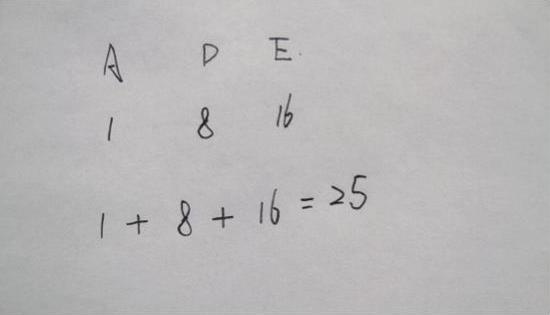 A D E.
1 8 16
1 + 8 + 16 = 25